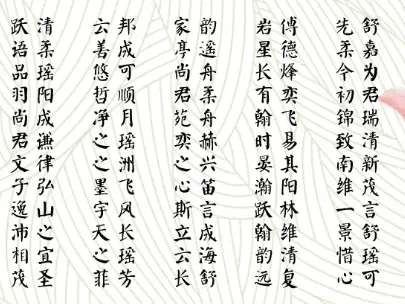 舒嘉为君瑞清新茂言舒瑶可
先柔今初锦致南维一景惜心
傅德烽奕飞易其阳林维清复
岩星长有翰时晏瀚跃翰韵远
韵遥舟柔舟赫兴笛言成海舒
家亭尚君苑奕之心斯立云长
邦成可顺月瑶洲飞风长瑶芳
云善悠哲净之之墨宇天之菲
清柔瑶阳成谦律弘山之宜圣
跃语品羽尚君文子逸沛相茂